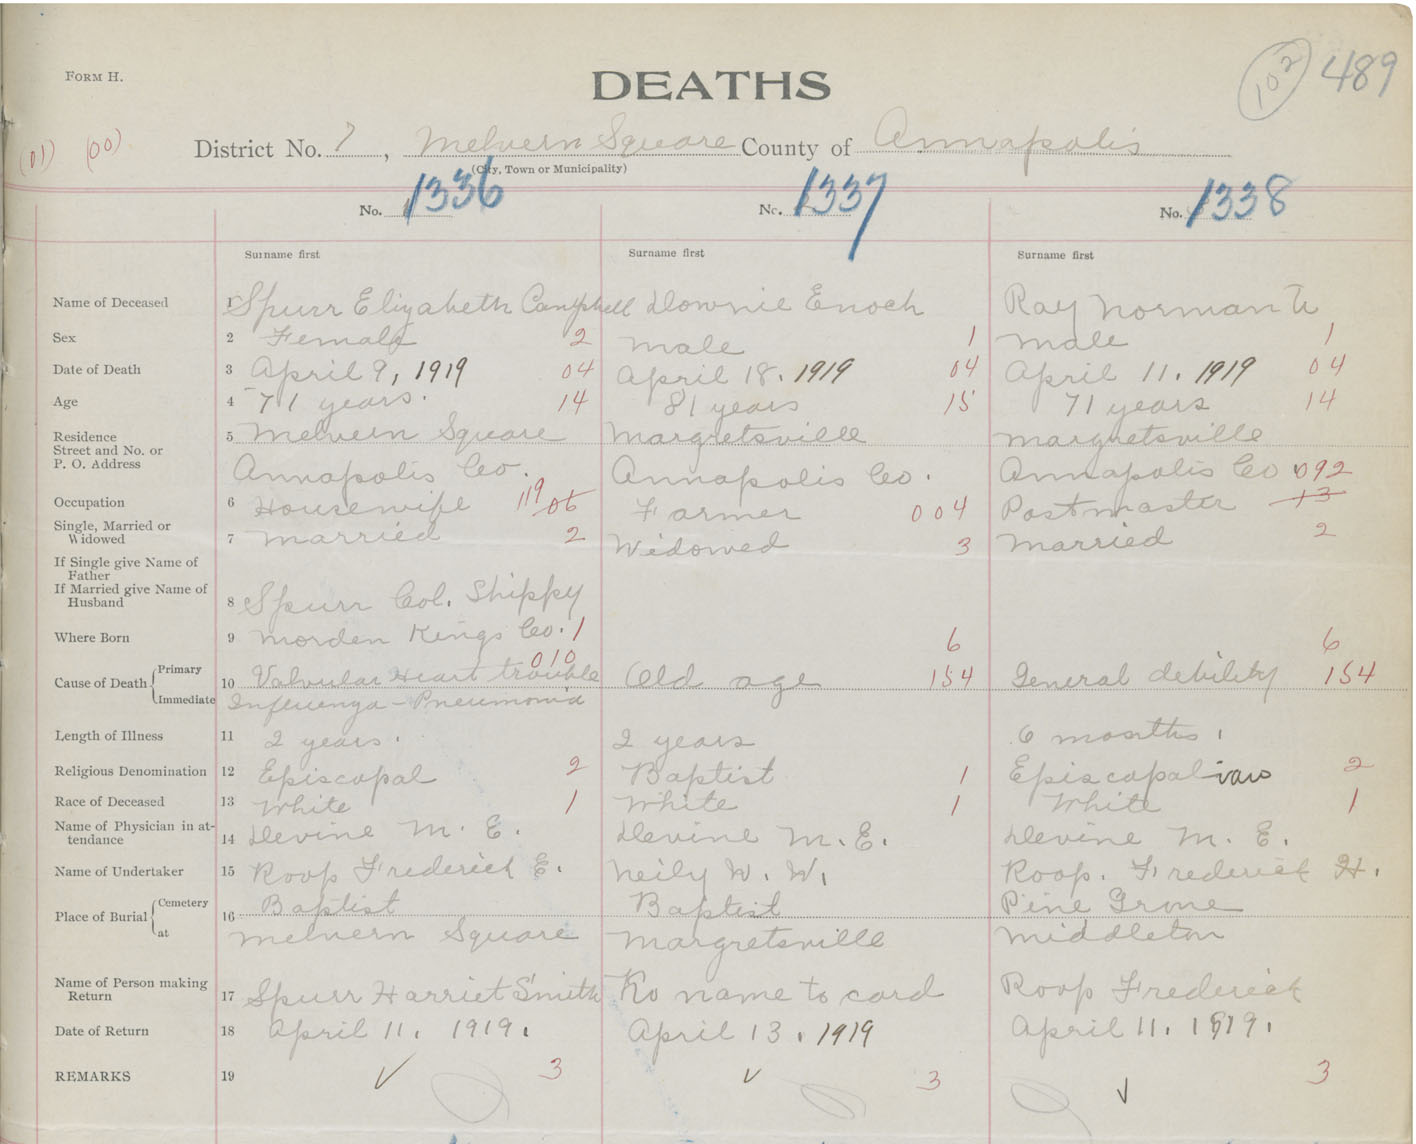 FORM H.
DEATHS
102 489
(01) (00)
District No. 7, Melvern Square County of Annapolis
(City, Town or Municipality)
No. 1336 No. 1337 No. 1338
Surname first Surname first Surname first
Name of Deceased 1 Spurr Elizabeth Campbell Downie Enoch Ray Norman
Sex 2 Female 2 Male 1 Male 1
Date of Death 3 April 9, 1919 04 April 18. 1919 04 April 11. 1919 04
Age 4 71 years. 14 81 years 15 71 years 14
Residence 5 Melvern Square Margretsville Margretsville
Street and No. or
P. O. Address Annapolis Co. Annapolis Co. Annapolis Co 092
Occupation 6 Housewife 119 06 Farmer 004 Postmaster 13
Single, Married or
Widowed 7 Married 2 Widowed 3 Married 2
If Single give Name of
Father
If Married give Name of
Husband 8 Spurr Col. Shippy
Where Born 9 Morden Kings Co. 1 6 6
010
Cause of Death Primary 10 Valvular Heart trouble Old age 154 General debility 154
Immediate Influenza - Pneumonia
Length of Illness 11 2 years. 2 years 6 months.
Religious Denomination 12 Episcopal 2 Baptist 1 Episcopalian 2
Race of Deceased 13 White 1 White 1 White 1
Name of Physician in at-
tendance 14 Devine M. E. Devine M. E. Devine M. E.
Name of Undertaker 15 Roop Frederick E. Neily W. W. Roop. Frederick H.
Place of Burial Cemetery 16 Baptist Baptist Pine Grove
at Melvern Square Margretsville Middleton
Name of Person making
Return 17 Spurr Harriet Smith No name to card Roop Frederick
Date of Return 18 April 11. 1919. April 13. 1919 April 11. 1919.
REMARKS 19 3 3 3